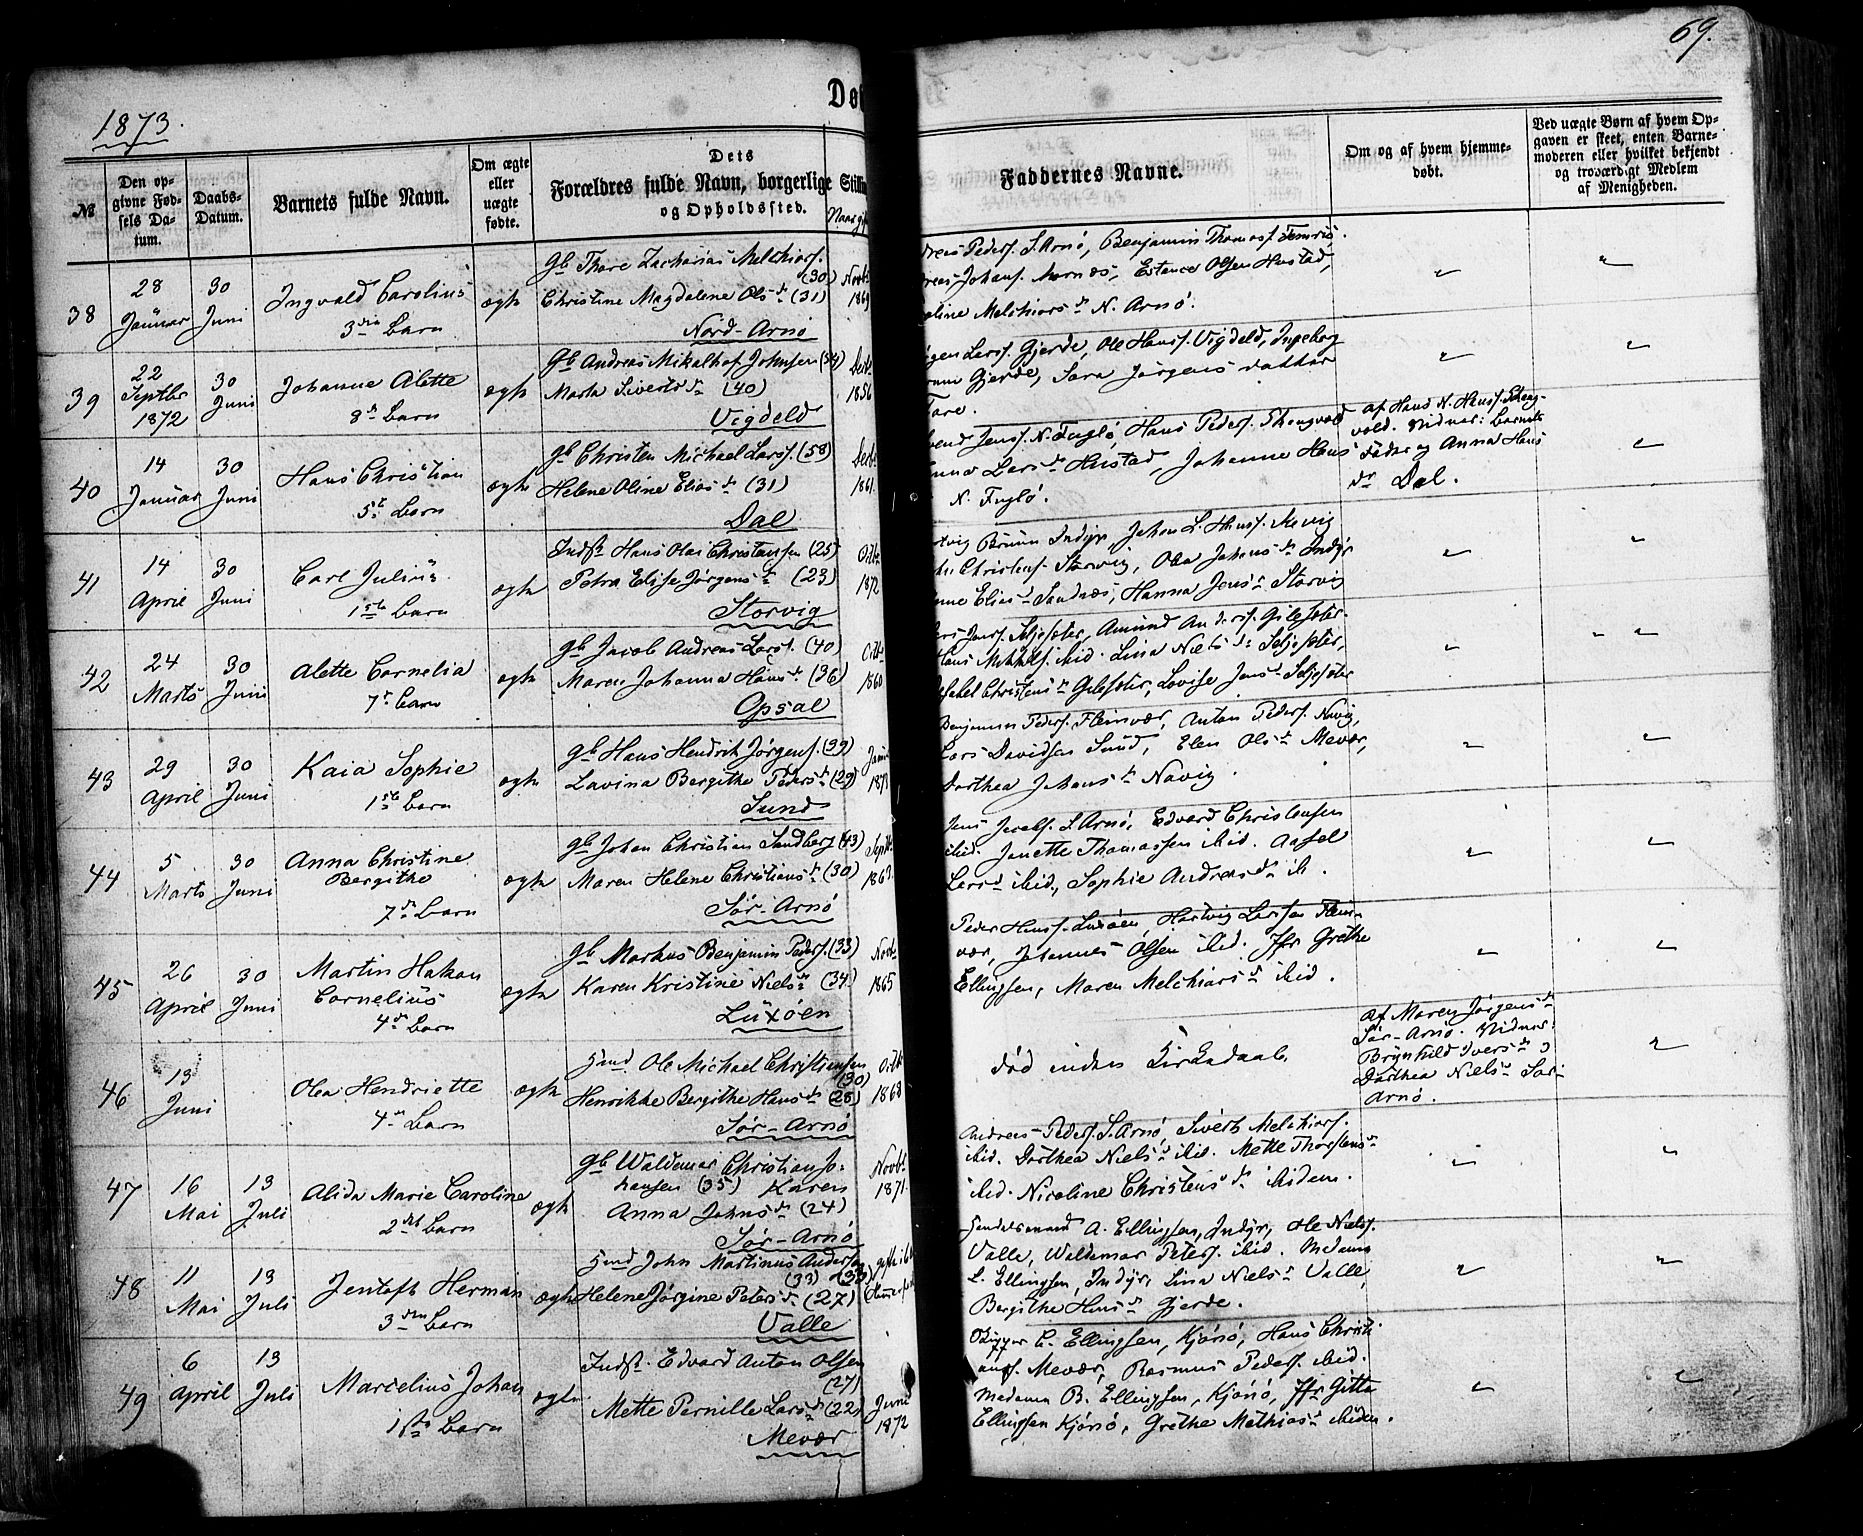 69.
1873.
Dø
№
Den op-
givne Fød-
sels Da-
tum.
Daabs-
Datum.
Barnets fulde Navn.
Om ægte
eller
uægte
fødte.
Dets
Forældres fulde Navn, borgerlige
og Opholdssted.
Faddernes Navne.
Om og af hvem hjemme-
døbt.
Ved uægte Børn af hvem Op-
gaven er skeet, enten Barne-
moderen eller hvilket bekjendt
og troværdigt Medlem
af Menigheden.
38
28
Januar
30
Juni
Ingvald Carolius
3die Barn
ægte
Gb Thore Zacharias Melchiors.
(30)
Christine Magdalene Olsdr (31)
Nord-Arnö
Novbr
Peders. S. Arnö, Benjamin Thomass.
Johans. Estence Olsen Hustad,
oline Melchiorsdr N. Arnö.
39
22
Septbr
1872
30
Juni
Johanne Alette
8de Barn
ægte
Gb Andreas Mikalhof Johnsen (34)
Marta Sivertsdr (40)
Vigdeld
1856
gen Larss. Gjerde, Ole Hanss. Vigdeld, Ingeborg
Gjerde, Sara Jørgens datter
Fore.
40
14
Januar
30
Juni
Hans Christian
5te Barn
ægte
Gb Christen Michael Larss. (58)
Helene Oline Eliasdr (31)
Dal
Decbr
1861.
Jenss. N. Fuglö, Hans Peders.
Larsdr Hustad, Johanne Hans
N. Fuglö.
af Hans N. Hanss.
vold. Vidner: barnets
Fader og Anna Hans
dr Dal.
41
14
April
30
Juni
Carl Julius
1ste Barn
ægte
Indst Hans Olai Christensen (25)
Petra Elise Jørgensdr (23)
Storvig
Octbr
1872
Bruun Indyr, Johan L. Hanss. Mevig
Christens. Storvig, Olea Johansdr Indyr
Eliasdr Sandnæs, Hanna Jensdr Storvig
42
24
Marts
30
Juni
Alette Cornelia
7de Barn
ægte
Gb Jacob Andreas Larss. (40)
Maren Johanna Hansdr (36)
Opsal
Octbr
1860
Jenss. Amund Anders. Gilesæter
Hans Mikkels. ibid. Lina Nielsdr
Christensdr Gilesæter, Lovise Jensdr
43
29
April
30
Juni
Kaia Sophie
1ste Barn
ægte
Gb Hans Hendrik Jørgens. (39)
Lavina Bergithe Pedersdr (29)
Sund
Benjamin Peders. Fleinvær, Anton Peders. Navig,
Lars Davidsen Sund, Elen Olsdr Mevær,
Dorthea Johansdr Navig.
44
5
Marts
30
Juni
Anna Christine
Bergithe
7de Barn
ægte
Gb Johan Christian Sandberg (43)
Maren Helene Christiansdr (30)
Sør-Arnö
Septbr
Jens Jacobs. S. Arnö, Edvard Christensen
ibid. Janette Thomassen ibid. Aasel
Larsdr ibid., Sophie Andreasdr ib.
45
26
April
30
Juni
Martin Hakon
Cornelius
4de Barn
ægte
Gb Markus Benjamin Peders. (33)
Karen Kristine Nielsdr (34)
Luxöen
Novbr
1865
Peder Hanss. Luxöen, Hartvig Larsen Flein-
vær, Johannes Olsen ibid. Jfr Grethe
Ellingsen, Maren Melchiorsdr ibid.
46
13
Juni
Olea Hendriette
4de Barn
ægte
Smd Ole Michael Christiansen
(30)
Henrikke Bergithe Hansdr (28)
Sør-Arnö
Octbr
1868
død inden Kirkedaab.
af Maren Jørgensdr
Sør-Arnö. Vidner:
Brynhild Iversdr og
Dorthea Nielsdr Sør-
Arnö.
47
16
Mai
13
Juli
Alida Marie Caroline
2det Barn
ægte
Gb Waldemar Christian Jo-
hansen (35) Karen
Anna Johnsdr (24)
Sør-Arnö
Novbr
1871.
Andreas Peders. S. Arnö, Sivert Melchiors.
ibid. Dorthea Nielsdr ibid. Mette Thorstensdr
ibid. Nicoline Christensdr ibidem.
48
11
Mai
13
Juli
Jentoft Herman
3die Barn
ægte
Smd John Martinus Anderson
(33) (33)
Helene Jørgine Petersdr (27)
Valle
gift i
Handelsmand A. Ellingsen, Indyr, Ole Niels.
Valle, Waldemar Peters. ibid. Madam
L. Ellingsen, Indyr, Lina Nielsdr Valle
Bergithe Hansdr Gjerde.
49
6
April
13
Juli
Marcelius Johan
1ste Barn
ægte
Indst. Edvard Anton Olsen
(27)
Mette Pernille Larsdr (22)
Mevær
Juni
1872
Skipper C. Ellingsen, Kjönö, Hans Christi
ans. Mevær, Rasmus Peders. ibid.
Madam B. Ellingsen, Kjönö, Jfr Gitta
Ellingsen Kjönö, Grethe Mathiasdr ibidem.